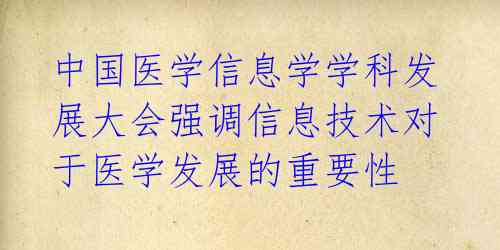 中国医学信息学学科发
展大会强调信息技术对
于医学发展的重要性